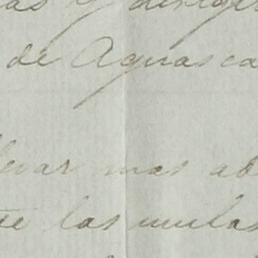 as y
de Aguasca
levar mas ab
te las mulas